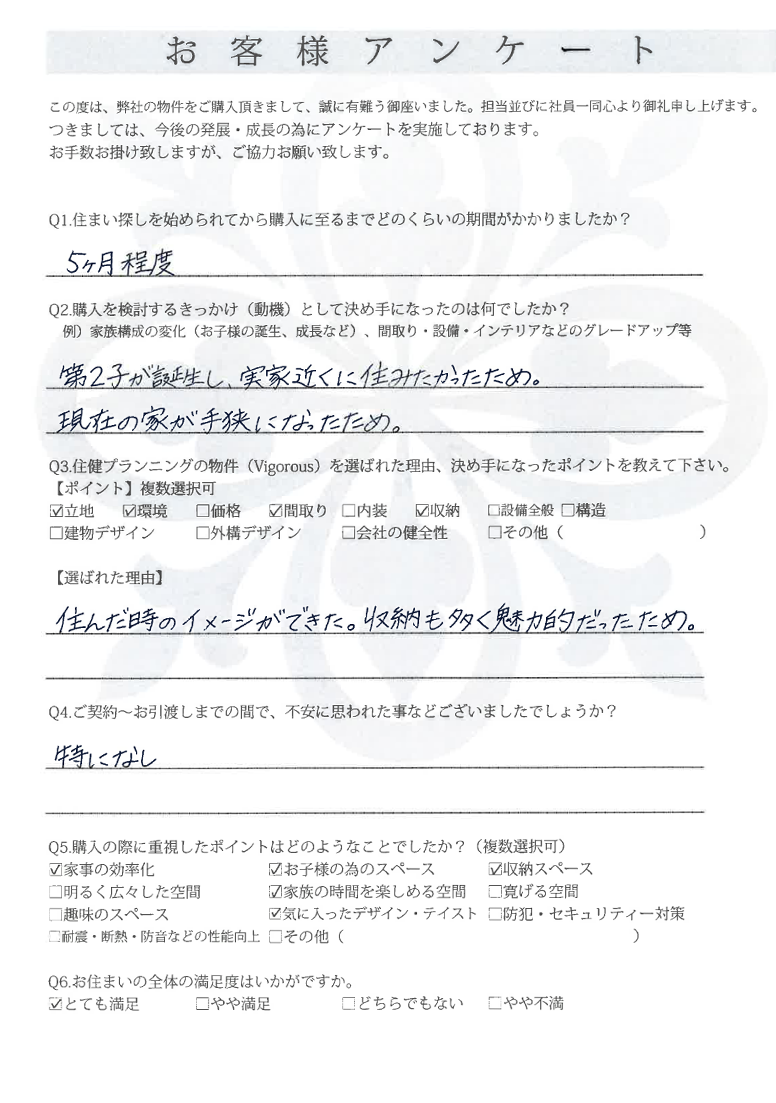 お客様アンケート
この度は、弊社の物件をご購入頂きまして、誠に有難う御座いました。担当並びに社員一同心より御礼申し上げます。
つきましては、今後の発展・成長の為にアンケートを実施しております。
お手数お掛け致しますが、ご協力お願い致します。
Q1.住まい探しを始められてから購入に至るまでどのくらいの期間がかかりましたか？
5ヶ月程度
Q2.購入を検討するきっかけ（動機）として決め手になったのは何でしたか？
例）家族構成の変化（お子様の誕生、成長など）、間取り・設備・インテリアなどのグレードアップ等
第2子が誕生し、実家近くに住みたかったため。
現在の家が手狭になったため。
Q3.住健プランニングの物件（Vigorous）を選ばれた理由、決め手になったポイントを教えて下さい。
【ポイント】複数選択可
☑立地 ☑環境 □価格 ☑間取り □内装 ☑収納 □設備全般 □構造
□建物デザイン □外構デザイン □会社の健全性 □その他（ ）
【選ばれた理由】
住んだ時のイメージができた。収納も多く魅力的だったため。
Q4.ご契約～お引渡しまでの間で、不安に思われた事などございましたでしょうか？
特になし
Q5.購入の際に重視したポイントはどのようなことでしたか？（複数選択可）
☑家事の効率化 ☑お子様の為のスペース ☑収納スペース
□明るく広々した空間 ☑家族の時間を楽しめる空間 □寛げる空間
□趣味のスペース ☑気に入ったデザイン・テイスト □防犯・セキュリティー対策
□耐震・断熱・防音などの性能向上 □その他（ ）
Q6.お住まいの全体の満足度はいかがですか。
☑とても満足 □やや満足 □どちらでもない □やや不満